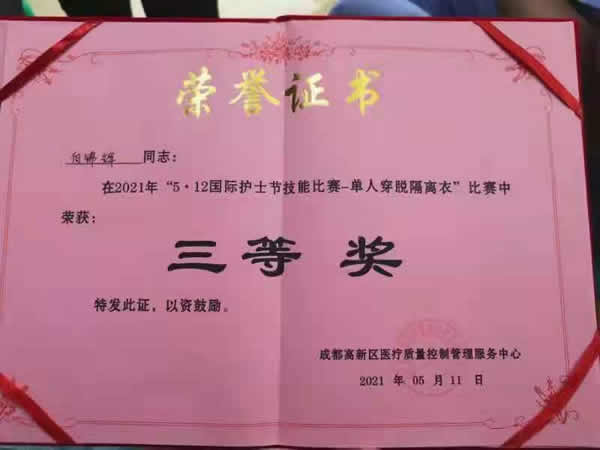 荣誉证书
同志:
在2021年“5·12国际护士节技能比赛-单人穿脱隔离衣”比赛中
荣获:
三等奖
特发此证,以资鼓励。
成都高新区医疗质量控制管理服务中心
2021 年 05 月 11 日